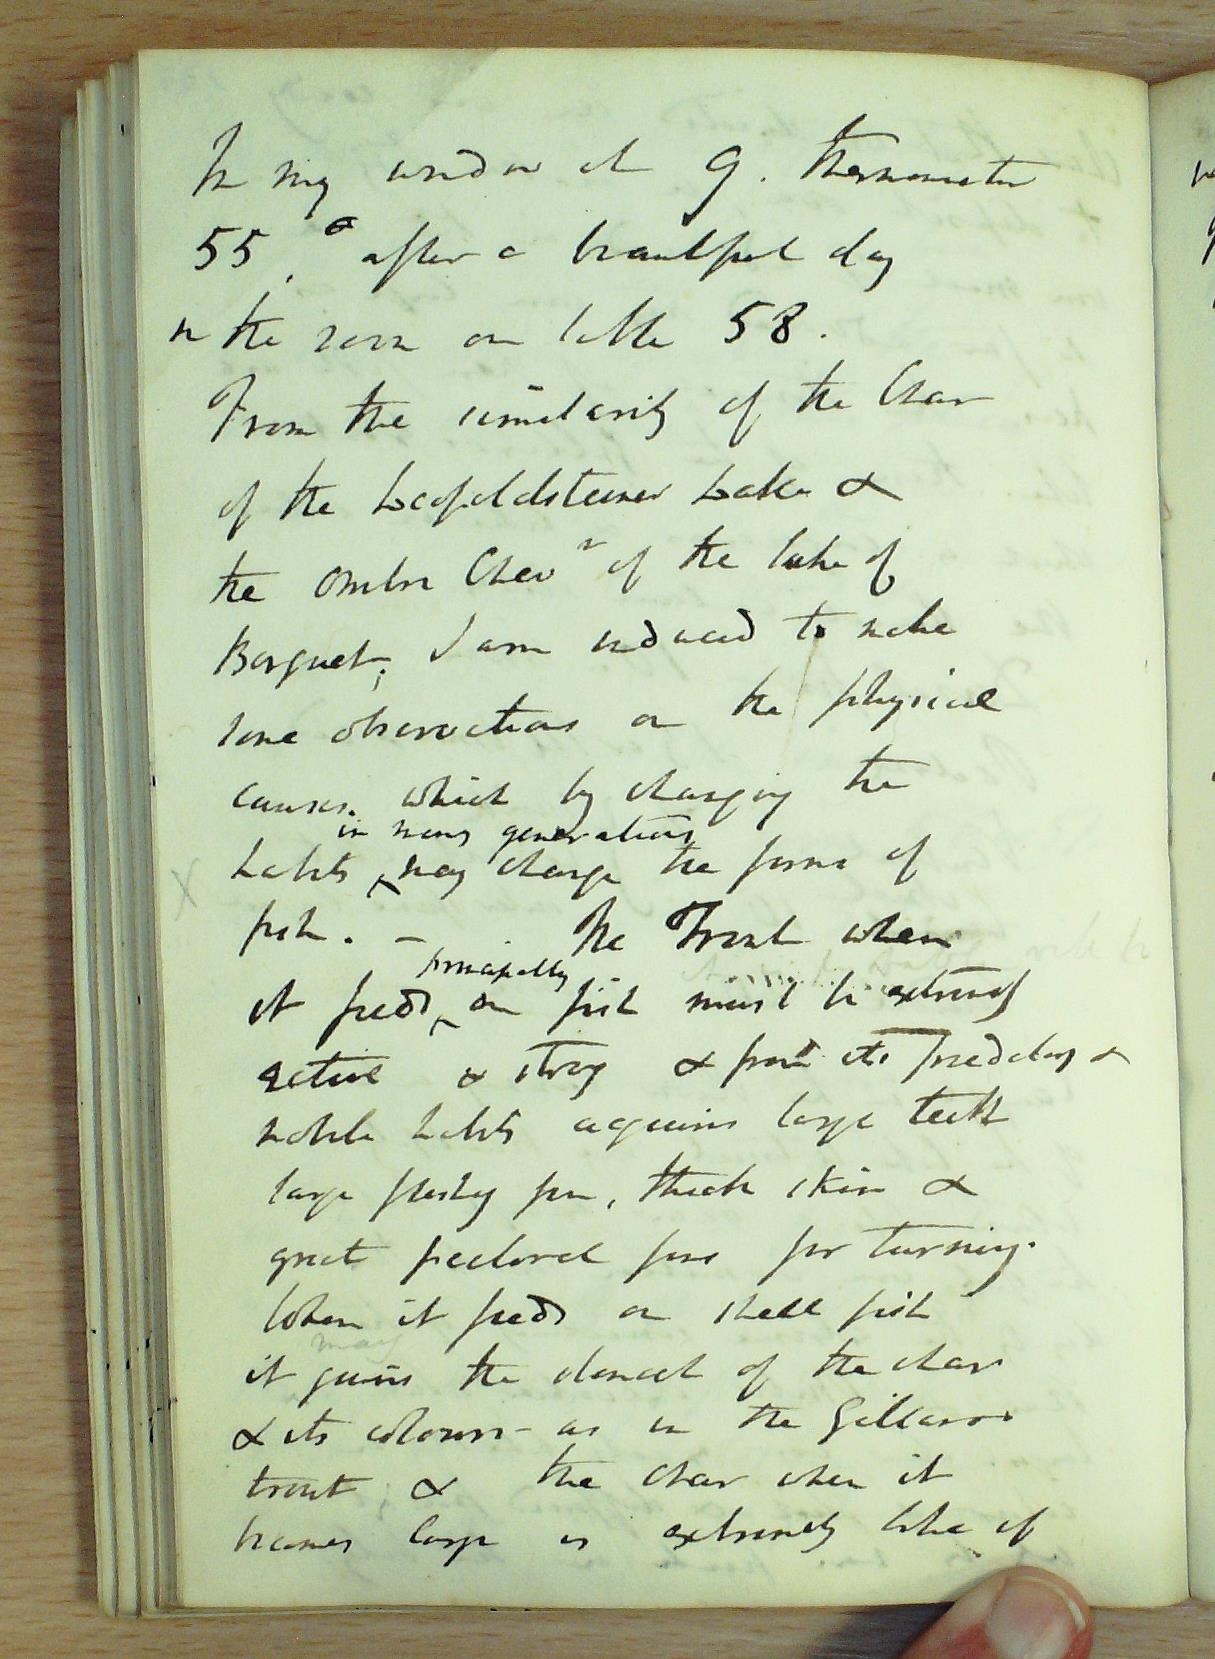 In my window at 9. thermometer
55.° after a beautiful day
in the room on table 58.
From the similarity of the Char
of the Leopoldsteiner Lake &
the Ombre Chevr of the lake of
Borguet; I am induced to make
some observations on the physical
causes. which by changing the
in many generations
habits may change the forms of
fish. – The Trout when
principally
it feeds on fish must be extremely
active & strong & from its predatory &
mobile habits acquires large teeth
large fleshy fin, thick skin &
great pectoral fins for turning.
When it feeds on shell fish
may
it gains the stomach of the char
& its colours – as in the Gillaroo
trout; & the Char when it
becomes large is extremely like if